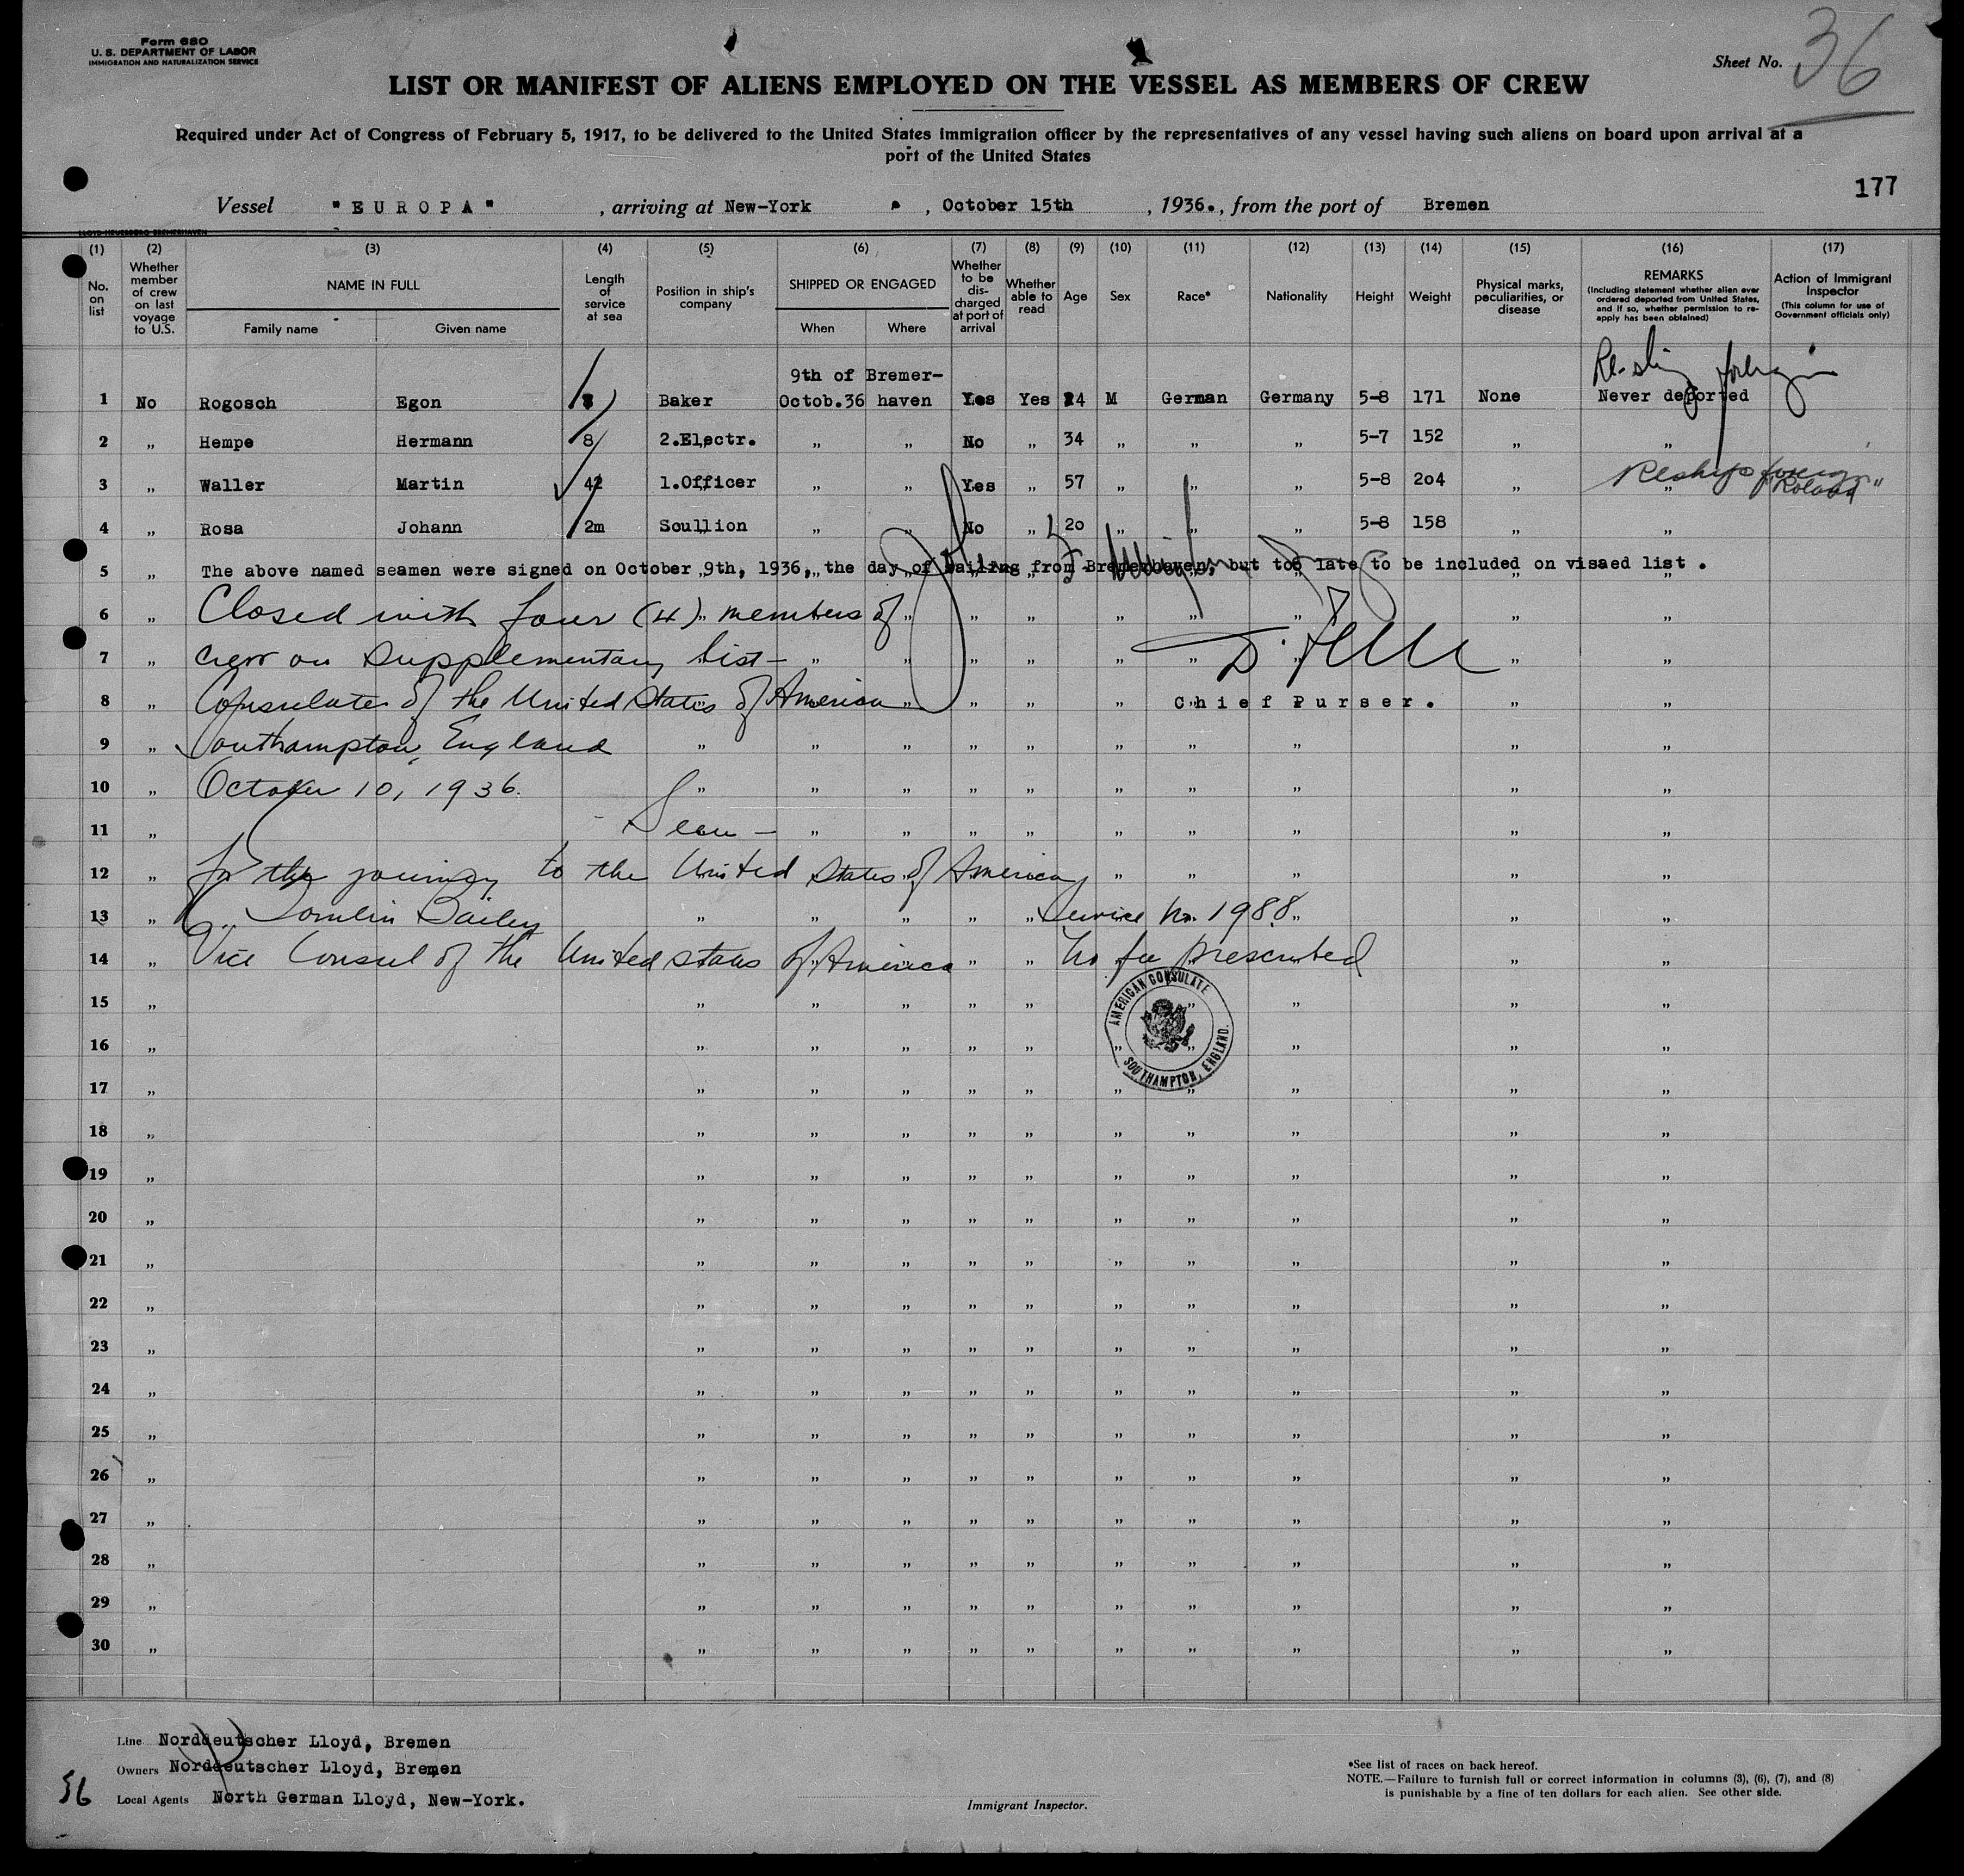 Form 680
U. S. DEPARTMENT OF LABOR
IMMIGRATION AND NATURALIZATION SERVICE
Sheet No. 36
LIST OR MANIFEST OF ALIENS EMPLOYED ON THE VESSEL AS MEMBERS OF CREW
Required under Act of Congress of February 5, 1917, to be delivered to the United States Immigration officer by the representatives of any vessel having such aliens on board upon arrival at a
port of the United States
177
Vessel "EUROPA", arriving at New-York, October 15th, 1936., from the port of Bremen
LLOYD-HEUERBÜRO BREMERHAVEN
(1) (2) (3) (4) (5) (6) (7) (8) (9) (10) (11) (12) (13) (14) (15) (16) (17)
No. on list
Whether member of crew on last voyage to U.S.
NAME IN FULL
Family name Given name
Length of service at sea
Position in ship's company
SHIPPED OR ENGAGED
When Where
Whether to be discharged at port of arrival
Whether able to read
Age
Sex
Race*
Nationality
Height
Weight
Physical marks, peculiarities, or disease
REMARKS
(Including statement whether alien ever ordered deported from United States, and if so, whether permission to re-apply has been obtained)
Action of Immigrant Inspector
(This column for use of Government officials only)
9th of Bremer-
1 No Rogosch Egon Baker Octob.36 haven Yes Yes 24 M German Germany 5-8 171 None Never deported
2 „ Hempe Hermann 8 2.Electr. „ „ No „ 34 „ „ „ 5-7 152 „ „
3 „ Waller Martin 42 1.Officer „ „ Yes „ 57 „ „ „ 5-8 204 „ „ Reship foreign
4 „ Rosa Johann 2m Scullion „ „ No „ 20 „ „ „ 5-8 158 „ „
5 „ The above named seamen were signed on October 9th, 1936, the day of sailing from Bremerhaven, but too late to be included on visaed list.
6 „ Closed with four (4) members of
7 „ crew on supplementary list—
8 „ Consulate of the United States of America
Chief Purser.
9 „ Southampton, England
10 „ October 10, 1936.
11 „ Seen —
12 „ For the journey to the United States of America
13 „ Tomlin Bailey Service No. 1988
14 „ Vice Consul of the United States of America No fee prescribed
AMERICAN CONSULATE
SOUTHAMPTON, ENGLAND.
15 „
16 „
17 „
18 „
19 „
20 „
21 „
22 „
23 „
24 „
25 „
26 „
27 „
28 „
29 „
30 „
Line Norddeutscher Lloyd, Bremen
Owners Norddeutscher Lloyd, Bremen
Local Agents North German Lloyd, New-York.
36
Immigrant Inspector.
*See list of races on back hereof.
NOTE.—Failure to furnish full or correct information in columns (3), (6), (7), and (8)
is punishable by a fine of ten dollars for each alien. See other side.